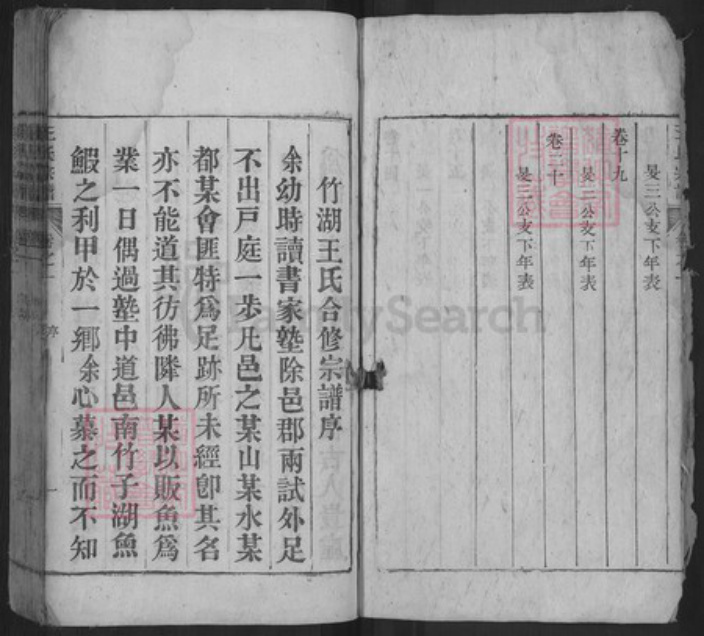 晏三公支下年表
卷十九
晏三公支下年表
卷二十
晏三公支下年表
竹湖王氏合修宗譜序
余幼時讀書家塾除邑郡兩試外足
不出戸庭一步凡邑之某山某水某
都某會匪特爲足跡所未經卽其名
亦不能道其彷彿隣人某以販魚爲
業一日偶過塾中道邑南竹子湖魚
鰕之利甲於一鄉余心慕之而不知
FamilySearch